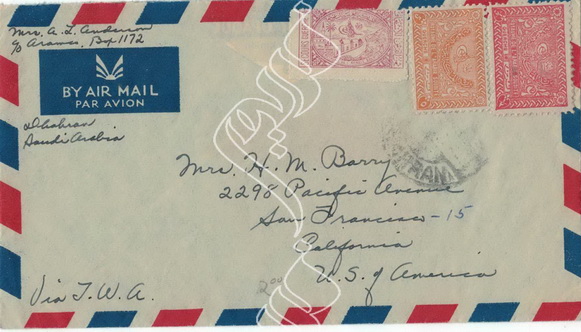 Mrs. A. L. Anderson
c/o Aramco, Box 1172
BY AIR MAIL
PAR AVION
Dhahran
Saudi Arabia
Mrs. H. M. Barry
2298 Pacific Avenue
San Francisco - 15
California
U. S. of America
Via T. W. A.